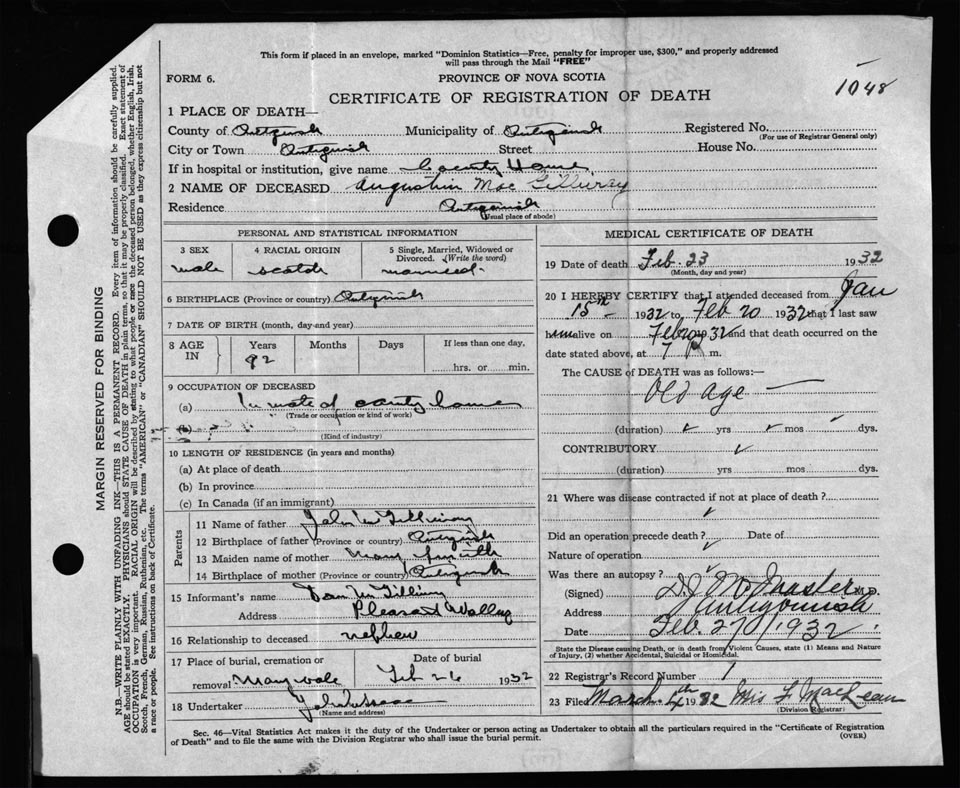 This form if placed in an envelope, marked "Dominion Statistics—Free, penalty for improper use, $300," and properly addressed
will pass through the Mail "FREE"
FORM 6. PROVINCE OF NOVA SCOTIA
1048
CERTIFICATE OF REGISTRATION OF DEATH
1 PLACE OF DEATH—
County of Antigonish Municipality of Antigonish Registered No.
(For use of Registrar General only)
City or Town Antigonish Street House No.
If in hospital or institution, give name County Home
2 NAME OF DECEASED Augustin Mac Gillivray
Residence Antigonish
(Usual place of abode)
PERSONAL AND STATISTICAL INFORMATION
3 SEX 4 RACIAL ORIGIN 5 Single, Married, Widowed or Divorced. (Write the word)
male scotch married
6 BIRTHPLACE (Province or country) Antigonish
7 DATE OF BIRTH (month, day and year)
8 AGE IN Years Months Days If less than one day,
92 hrs. or min.
9 OCCUPATION OF DECEASED
(a) Inmate of county home
(Trade or occupation or kind of work)
(Kind of industry)
10 LENGTH OF RESIDENCE (in years and months)
(a) At place of death
(b) In province
(c) In Canada (if an immigrant)
Parents
11 Name of father John
12 Birthplace of father (Province or country) Antigonish
13 Maiden name of mother Mary
14 Birthplace of mother (Province or country) Antigonish
15 Informant's name Dan
Address Pleasant Valley
16 Relationship to deceased nephew
17 Place of burial, cremation or removal Date of burial
Feb 26 1932
18 Undertaker
(Name and address)
MEDICAL CERTIFICATE OF DEATH
19 Date of death Feb. 23 1932
(Month, day and year)
20 I HEREBY CERTIFY that I attended deceased from Jan
15th 1932 to Feb 20 1932 that I last saw
him alive on Feb 20 1932 and that death occurred on the
date stated above, at 7 P m.
The CAUSE of DEATH was as follows:—
Old age
(duration) yrs mos dys.
CONTRIBUTORY
(duration) yrs mos dys.
21 Where was disease contracted if not at place of death?
Did an operation precede death? Date of
Nature of operation
Was there an autopsy?
(Signed) M.D.
Address Antigonish
Date Feb. 27 / 1932
State the Disease causing Death, or in death from Violent Causes, state (1) Means and Nature
of Injury, (2) whether Accidental, Suicidal or Homicidal.
22 Registrar's Record Number 1
23 Filed March 4th 1932 Mrs
(Division Registrar)
Sec. 46—Vital Statistics Act makes it the duty of the Undertaker or person acting as Undertaker to obtain all the particulars required in the "Certificate of Registration
of Death" and to file the same with the Division Registrar who shall issue the burial permit. (OVER)
MARGIN RESERVED FOR BINDING
N.B.—WRITE PLAINLY WITH UNFADING INK—THIS IS A PERMANENT RECORD. Every item of information should be carefully supplied.
AGE should be stated EXACTLY. PHYSICIANS should STATE CAUSE OF DEATH in plain terms, so that it may be properly classified. Exact statement of
OCCUPATION is very important. RACIAL ORIGIN will be described by stating to what people or race the deceased person belonged, whether English, Irish,
Scotch, French, German, Russian, Ruthenian, etc. The terms "AMERICAN" or "CANADIAN" SHOULD NOT BE USED as they express citizenship but not
a race or people. See instructions on back of Certificate.